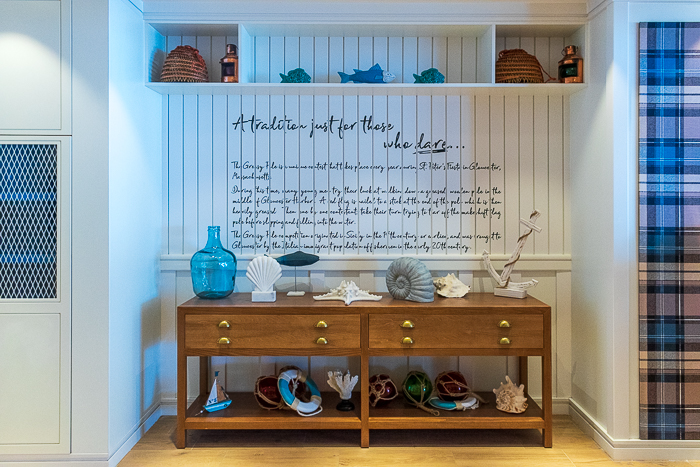 A tradition just for those
who dare...
The Greasy Pole is a unique contest that takes place every year during St. Peter's Fiesta in Gloucester,
Massachusetts.
During this time, many young men try their luck at walking down a greased wooden pole in the
middle of Gloucester Harbor. A red flag is nailed to a stick at the end of the pole which is then
heavily greased. Then one by one contestants take their turn trying to tear off the makeshift flag
pole before slipping and falling into the water.
The Greasy Pole competition originated in Sicily in the 17th century or earlier, and was brought to
Gloucester by the Italian immigrant population of fishermen in the early 20th century.